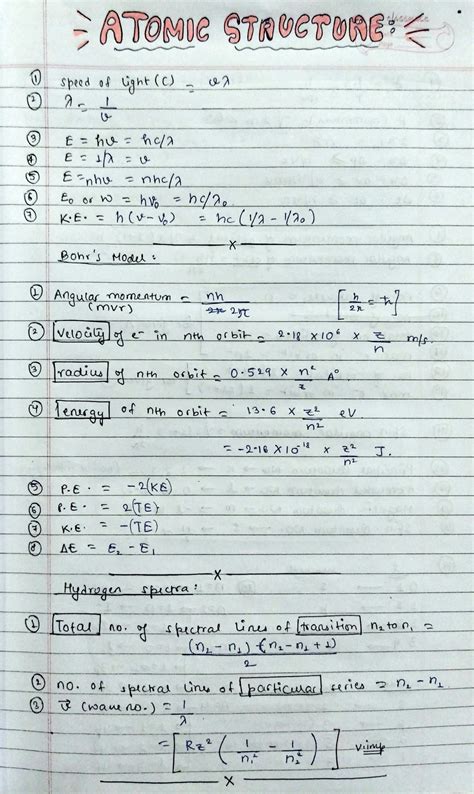 ATOMIC STRUCTURE:
① speed of light (C) = υλ
② λ = 1/υ
③ E = hυ = hc/λ
④ E = 1/λ = υ
⑤ E = nhυ = nhc/λ
⑥ E₀ or W = hυ₀ = hc/λ₀
⑦ K.E. = h(υ-υ₀) = hc(1/λ - 1/λ₀)
x
Bohr's Model:
① Angular momentum = nh/2π [h/2π = ħ]
(mvr)
② Velocity of e⁻ in nth orbit = 2.18 x 10⁶ x z/n m/s.
③ radius of nth orbit = 0.529 x n²/z A°
④ energy of nth orbit = 13.6 x z²/n² eV
= -2.18 x 10⁻¹⁸ x z²/n² J.
⑤ P.E. = -2(KE)
⑥ P.E. = 2(TE)
⑦ K.E. = -(TE)
⑧ ΔE = E₂ - E₁
x
Hydrogen spectra:
① Total no. of spectral lines of transition n₂ to n₁ =
(n₂-n₁)(n₂-n₁+1)/2
② no. of spectral line of particular series = n₂ - n₁
③ ῡ (wave no.) = 1/λ
= [Rz² (1/n₁² - 1/n₂²)] v.imp
x